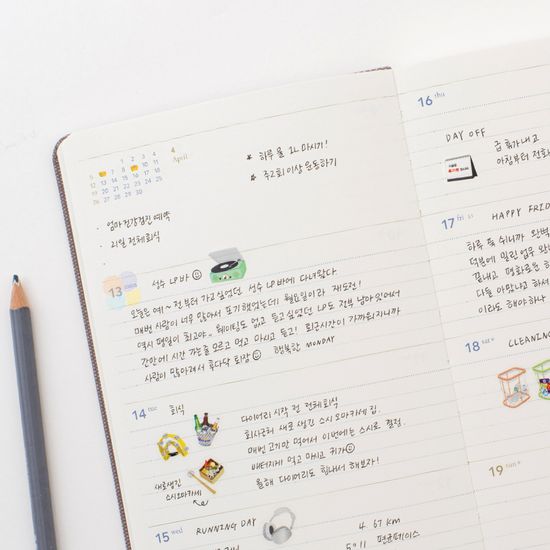 4
April
1 2 3 4
5 6 7 8 9 10 11
12 13 14 15 16 17 18
19 20 21 22 23 24 25
26 27 28 29 30
★ 하루 물 2L 마시기!
★ 주2회 이상 운동하기
· 엄마 건강검진 예약
· 21일 전체회식
·
13 성수 LP바
오늘은 예~전부터 가고 싶었던 성수 LP바에 다녀왔다.
매번 사람이 너무 많아서 포기했었는데 월요일이라 재도전!
역시 평일이 최고야.. 웨이팅도 없고 듣고싶었던 LP도 전부 남아있어서
간만에 시간 가는줄 모르고 먹고 마시고 듣고! 퇴근시간이 가까워지니까
사람이 많아져서 후다닥 퇴장 행복한 MONDAY
14 tue 회식
다이어리 시작 전 전체회식
회사근처 새로 생긴 스시 오마카세 집.
매번 고기만 먹어서 이번에는 스시로 결정.
배터지게 먹고 마시고 귀가
올해 다이어리도 힘내서 해보자!
새로생긴
스시오마카세
15 wed RUNNING DAY
4. 67 km
5" 11 평균페이스
16 thu
DAY OFF
급 휴가내고
아침부터 전화
17 fri HAPPY FRID
하루 푹 쉬니까 완벽
덕분에 밀린업무 완
끝내고, 평화로운
다들 아팠냐고 하시
이라도 해야하나
18 sat CLEANING
19 sun